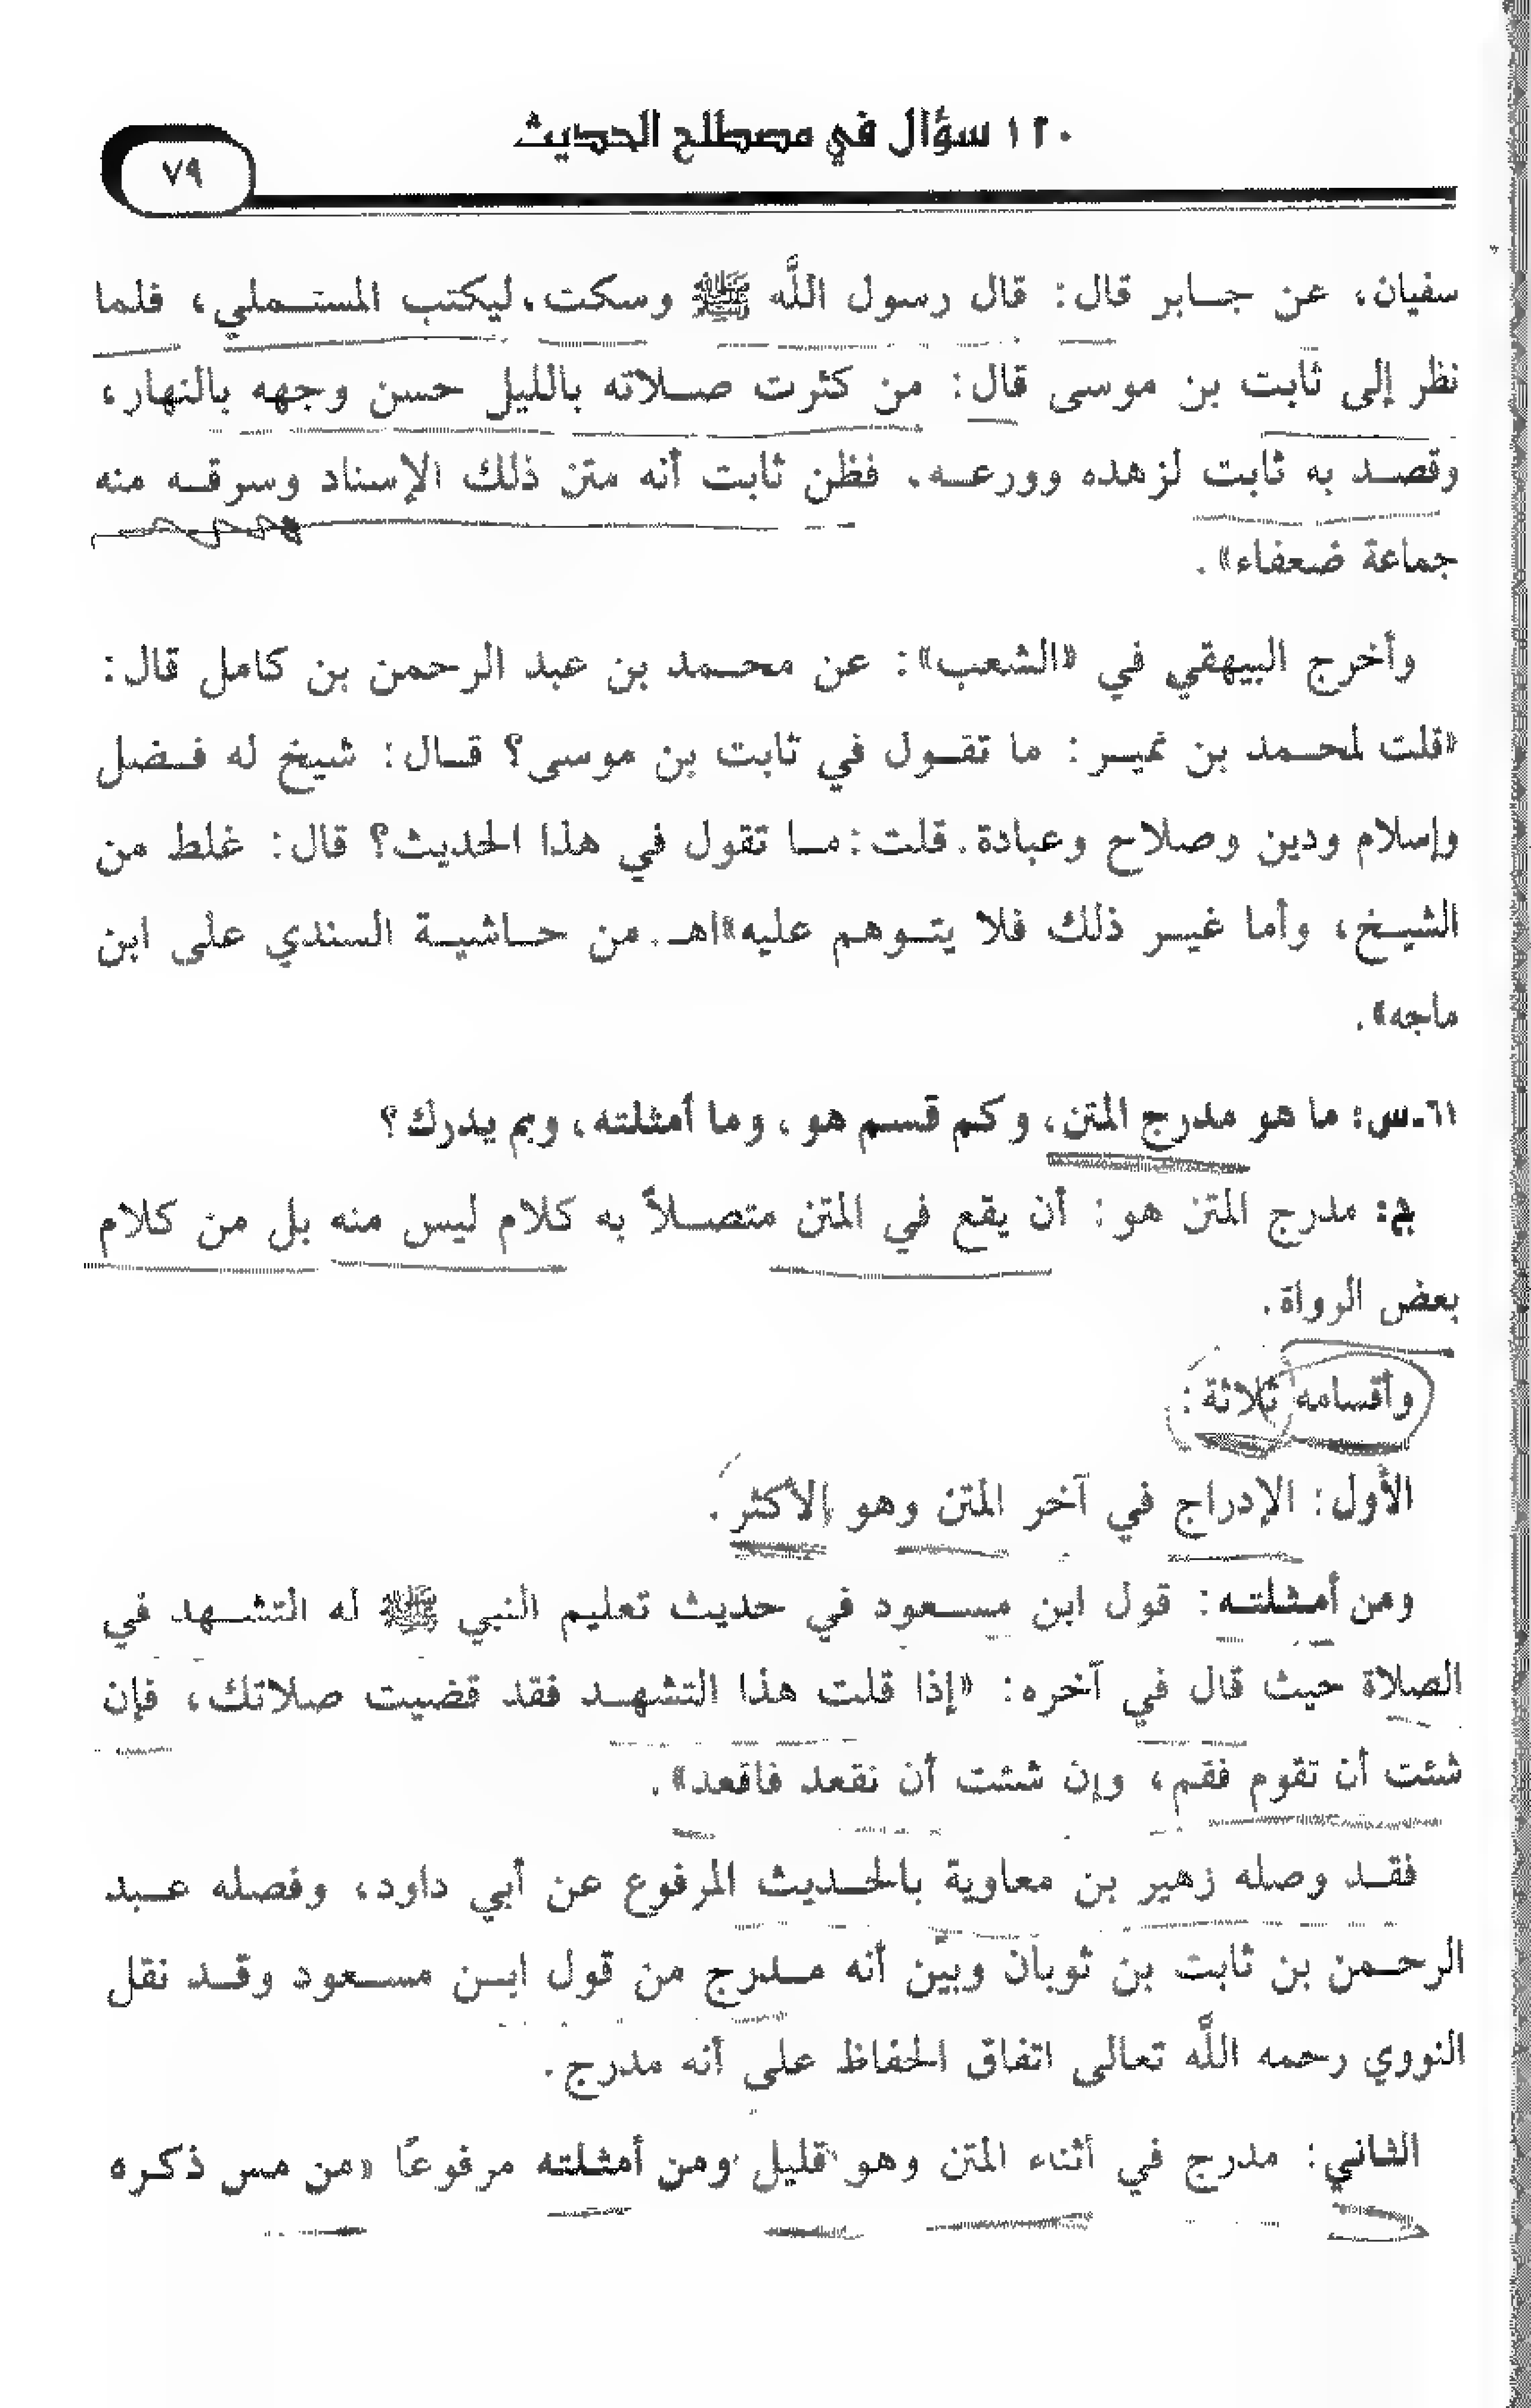 ١٢٠ سؤال في مصطلح الحديث
٧٩
سفيان، عن جابر قال: قال رسول اللَّه ﷺ وسكت، ليكتب المستملي، فلما
نظر إلى ثابت بن موسى قال: من كثرت صلاته بالليل حسن وجهه بالنهار،
وقصد به ثابت لزهده وورعه. فظن ثابت أنه متن ذلك الإسناد وسرقه منه
جماعة ضعفاء».
وأخرج البيهقي في «الشعب»: عن محمد بن عبد الرحمن بن كامل قال:
«قلت لمحمد بن نمير: ما تقول في ثابت بن موسى؟ قال: شيخ له فضل
وإسلام ودين وصلاح وعبادة. قلت: ما تقول في هذا الحديث؟ قال: غلط من
الشيخ، وأما غير ذلك فلا يتوهم عليه»اهـ. من حاشية السندي على ابن
ماجه».
٦١ـ س: ما هو مدرج المتن، وكم قسم هو، وما أمثلته، وبم يدرك؟
ج: مدرج المتن هو: أن يقع في المتن متصلاً به كلام ليس منه بل من كلام
بعض الرواة.
وأقسامه ثلاثة:
الأول: الإدراج في آخر المتن وهو الأكثر.
ومن أمثلته: قول ابن مسعود في حديث تعليم النبي ﷺ له التشهد في
الصلاة حيث قال في آخره: «إذا قلت هذا التشهد فقد قضيت صلاتك، فإن
شئت أن تقوم فقم، وإن شئت أن تقعد فاقعد».
فقد وصله زهير بن معاوية بالحديث المرفوع عن أبي داود، وفصله عبد
الرحمن بن ثابت بن ثوبان وبيَّن أنه مدرج من قول ابن مسعود وقد نقل
النووي رحمه اللَّه تعالى اتفاق الحفاظ على أنه مدرج.
الثاني: مدرج في أثناء المتن وهو قليل ومن أمثلته مرفوعًا «من مس ذكره